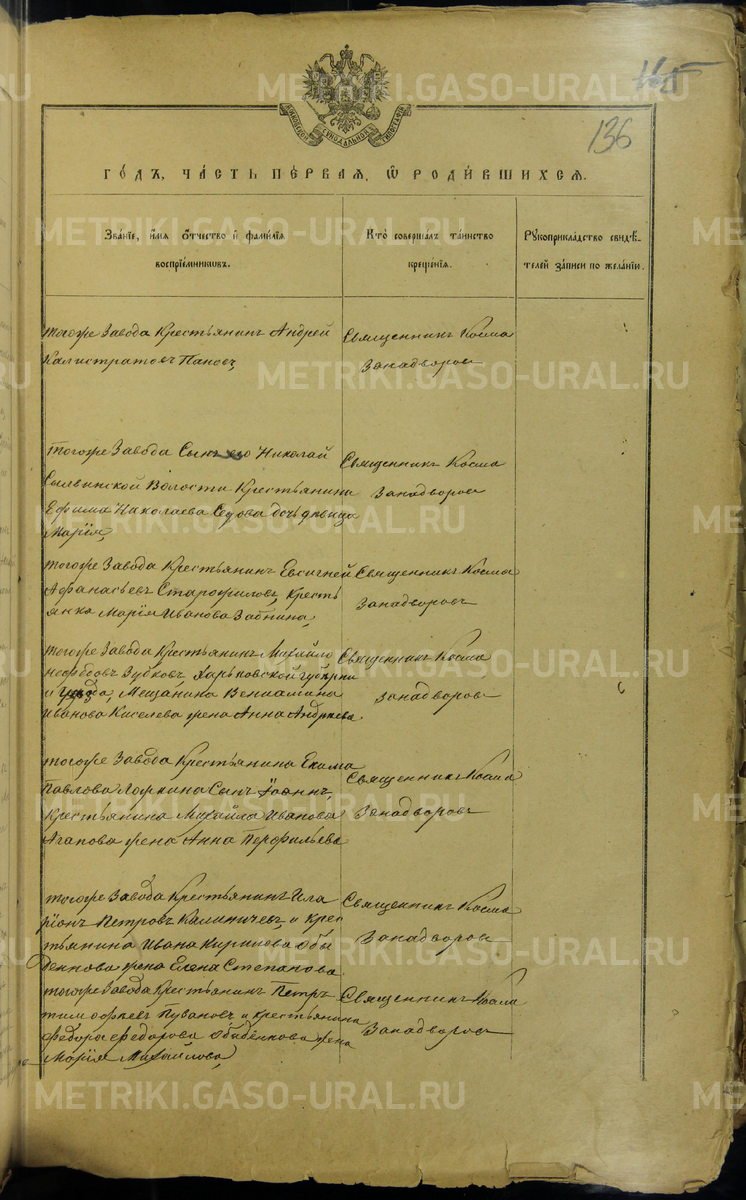 136
ГО́ДЪ, ЧА́СТЬ ПЕ́РВАЯ, Ѡ҆ РОДИ́ВШИХСЯ.
Зва́нїе, и҆́мя ѻ҆́тчество и҆ фами́лїя
воспрїе́мниковъ.
Кто̀ соверша́лъ та́инство
креще́нїя.
Рꙋкоприкла́дство свидѣ́-
телей за́писи по жела́нїю.
тогоже Завода Крестьянинъ Андрей
Калистратовъ Пановъ,
Священникъ Косма
Занадворовъ
тогоже Завода Сынъ его Николай
Сылвинской Волости Крестьянина
Ефима Николаева Седова дочь девица
Марія,
Священникъ Косма
Занадворовъ
тогоже Завода Крестьянинъ Евсигней
Афанасьевъ Старофиловъ, Кресть
янка Марія Иванова Забнина,
Священникъ Косма
Занадворовъ
тогоже Завода Крестьянинъ Михайло
Зубковъ, Харьковской губерніи
и Уезда, Мещанина Веніамина
Иванова Киселева жена Анна Андреева.
Священникъ Косма
Занадворовъ
тогоже Завода Крестьянина Екима
Павлова Ложкина Сынъ Іоаннъ,
Крестьянина Михайла Иванова
Агапова жена Анна Перфильева
Священникъ Косма
Занадворовъ
тогоже Завода Крестьянинъ Ила
ріонъ Петровъ Калиничевъ, и Крес
тьянина Ивана Кирилова Оби
деннова жена Елена Степанова.
Священникъ Косма
Занадворовъ
тогоже Завода Крестьянинъ Петръ
Тимофеевъ Пувановъ и крестьянина
Федора Федорова Обиденнова жена
Марія Михайлова,
Священникъ Косма
Занадворовъ
METRIKI.GASO-URAL.RU